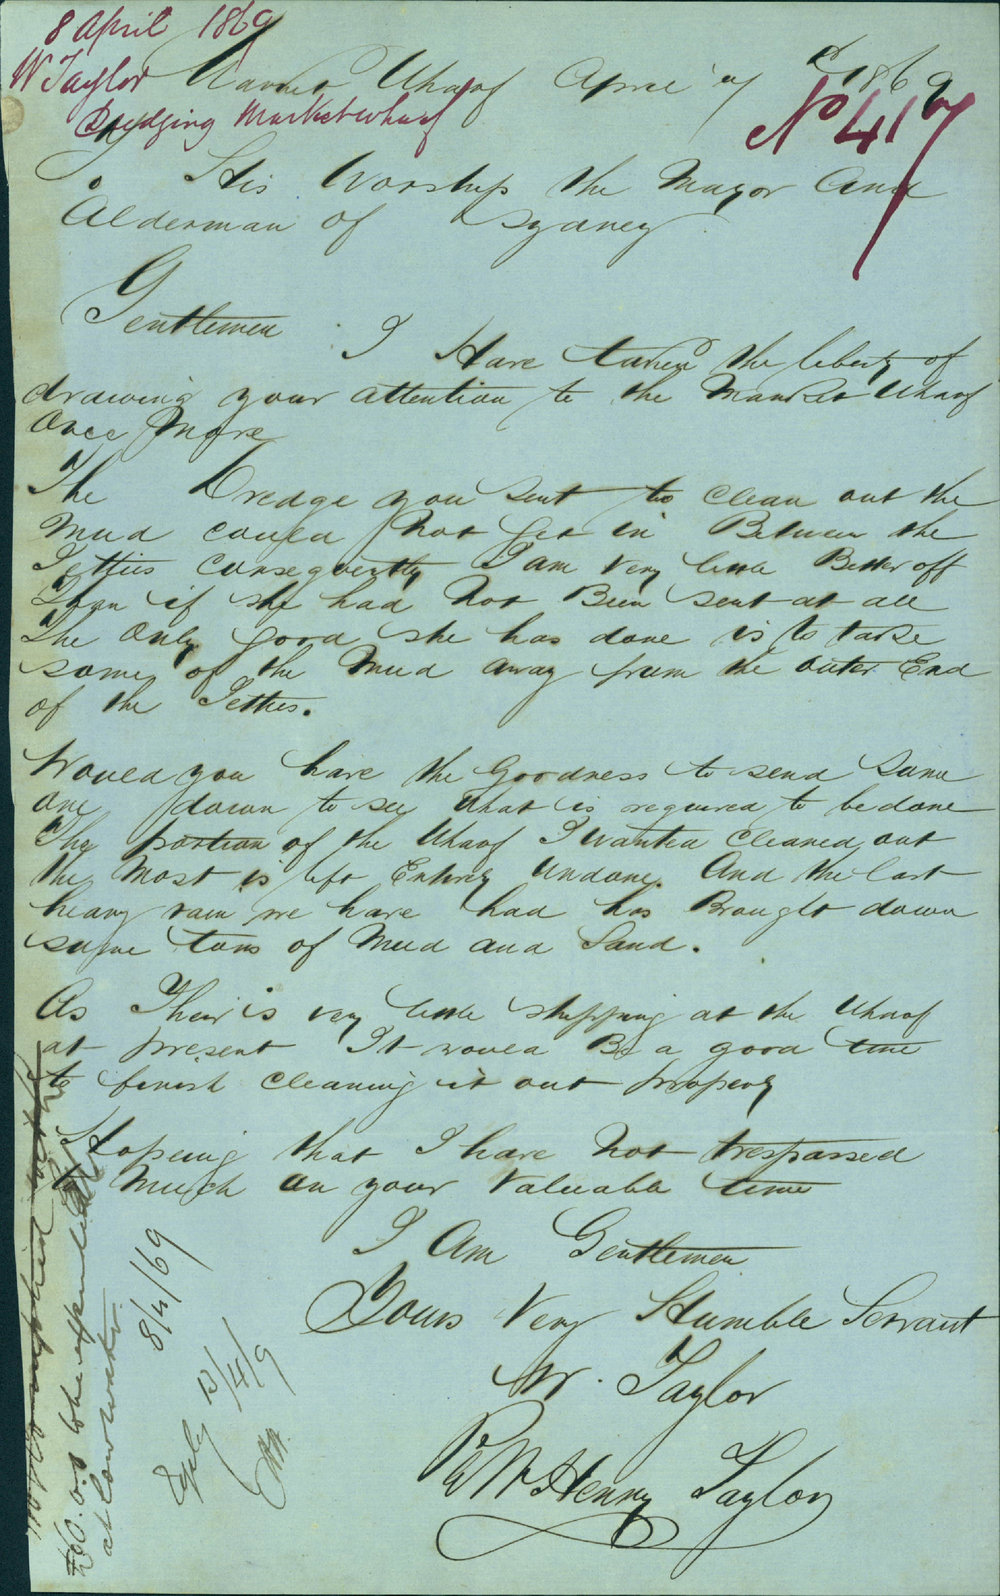 8 April 1869
W Taylor
Dredging Market wharf
No 417
Market Wharf April 7 1869
To His Worship the Mayor And
Alderman of Sydney
Gentlemen I Have taken the liberty of
drawing your attention to the Market Wharf
Once More
The Dredge you sent to clean out the
Mud could Not Get in Between the
Jetties consequently I am very little Better off
Than if she had Not Been sent at all
The Only good she has done is to take
some of the Mud away from the outer End
of the Jetties.
Would you have the Goodness to send some
one down to see what is required to be done
The portion of the Wharf I wanted cleaned out
the Most is left Entirely Undone. And the last
heavy rain we have had has Brought down
some tons of Mud and Sand.
As Their is very little shipping at the Wharf
at present It would Be a good time
to finish cleaning it out properly
Hopeing that I have Not trespassed
to Much on your Valuable time
I Am Gentlemen
Yours Very Humble Servant
W. Taylor
Pr Wm Henry Taylor
£60.0.0 to be expended
at low water
8/4/69
Reply 13/4/9